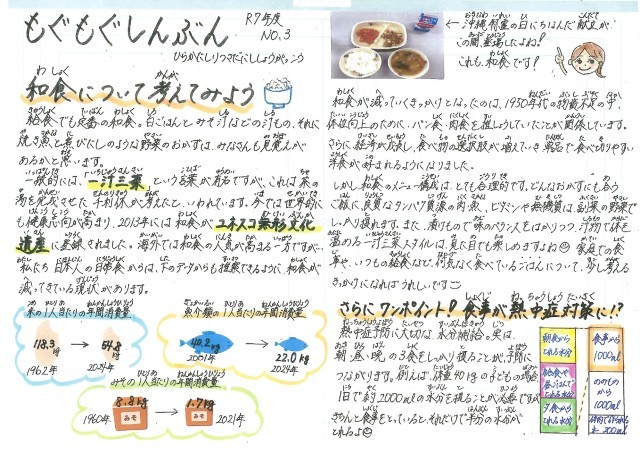 もぐもぐしんぶん
R7年度
NO.3
ひらかたしりつさだにししょうがっこう
和食について考えてみよう
給食でも定番の和食。白ごはんと、みそ汁などの汁もの、それに
焼き魚と煮びたしのような野菜のおかずは、みなさんも見覚えが
あるかと思います。
一般的には、「一汁三菜」という言葉が有名ですが、これは茶の
湯を完成させた千利休が考えたと、いわれています。今では世界的に
も健康志向が高まり、2013年には和食がユネスコ無形文化
遺産に登録されました。海外では和食の人気が高まる一方ですが、
私たち日本人の日常食からは、下のデータからも推察できるように和食が
減ってきている現状があります。
米の1人当たりの年間消費量
118.3kg
→
54.8kg
1962年
2024年
魚介類の1人当たりの年間消費量
40.2kg
→
22.0kg
2001年
2024年
みその1人当たりの年間消費量
1960年
8.8kg
みそ
→
1.7kg
みそ
2021年
← 沖縄慰霊の日にちなんだ献立が、
この間登場したよね!
これも、和食です!
和食が減っていくきっかけとなったのは、1950年代の物資不足の中、
体位向上のために、パン食・肉食を推しょうしていたことが関係しています。
さらに経済が成長し、食べ物の選択肢が増えていき単品で食べ切りやすい
洋食が好まれるようになりました。
しかし、和食のメニュー構成は、とても合理的です。どんなおかずにも合う
ご飯に、良質なタンパク質源の肉・魚、ビタミンや無機質は、副菜の野菜で
しっかり摂れます。また、漬けもので味のバランスをはかりつつ、汁物で体を
温める一汁三菜スタイルは、見た目でも楽しめますね
家庭での食
事や、いつもの給食など、何気なく食べているごはんについて、少し考える
きっかけになればうれしいです。
さらにワンポイント!食事が熱中症対策に!?
熱中症予防に大切な水分補給。実は、
朝・昼・晩の3食をしっかり摂ることが、予防に
つながります。例えば、体重40kgの子どもの場合
1日で約2000mlの水分を摂ることが必要ですが、
きちんと食事をとっていると、それだけで半分の水分が
とれるよ
朝食から
とれる水分
給食や
昼ごはんで
とれる水分
夕食から
とれる水分
食事から
1000ml
のみものから
1000ml